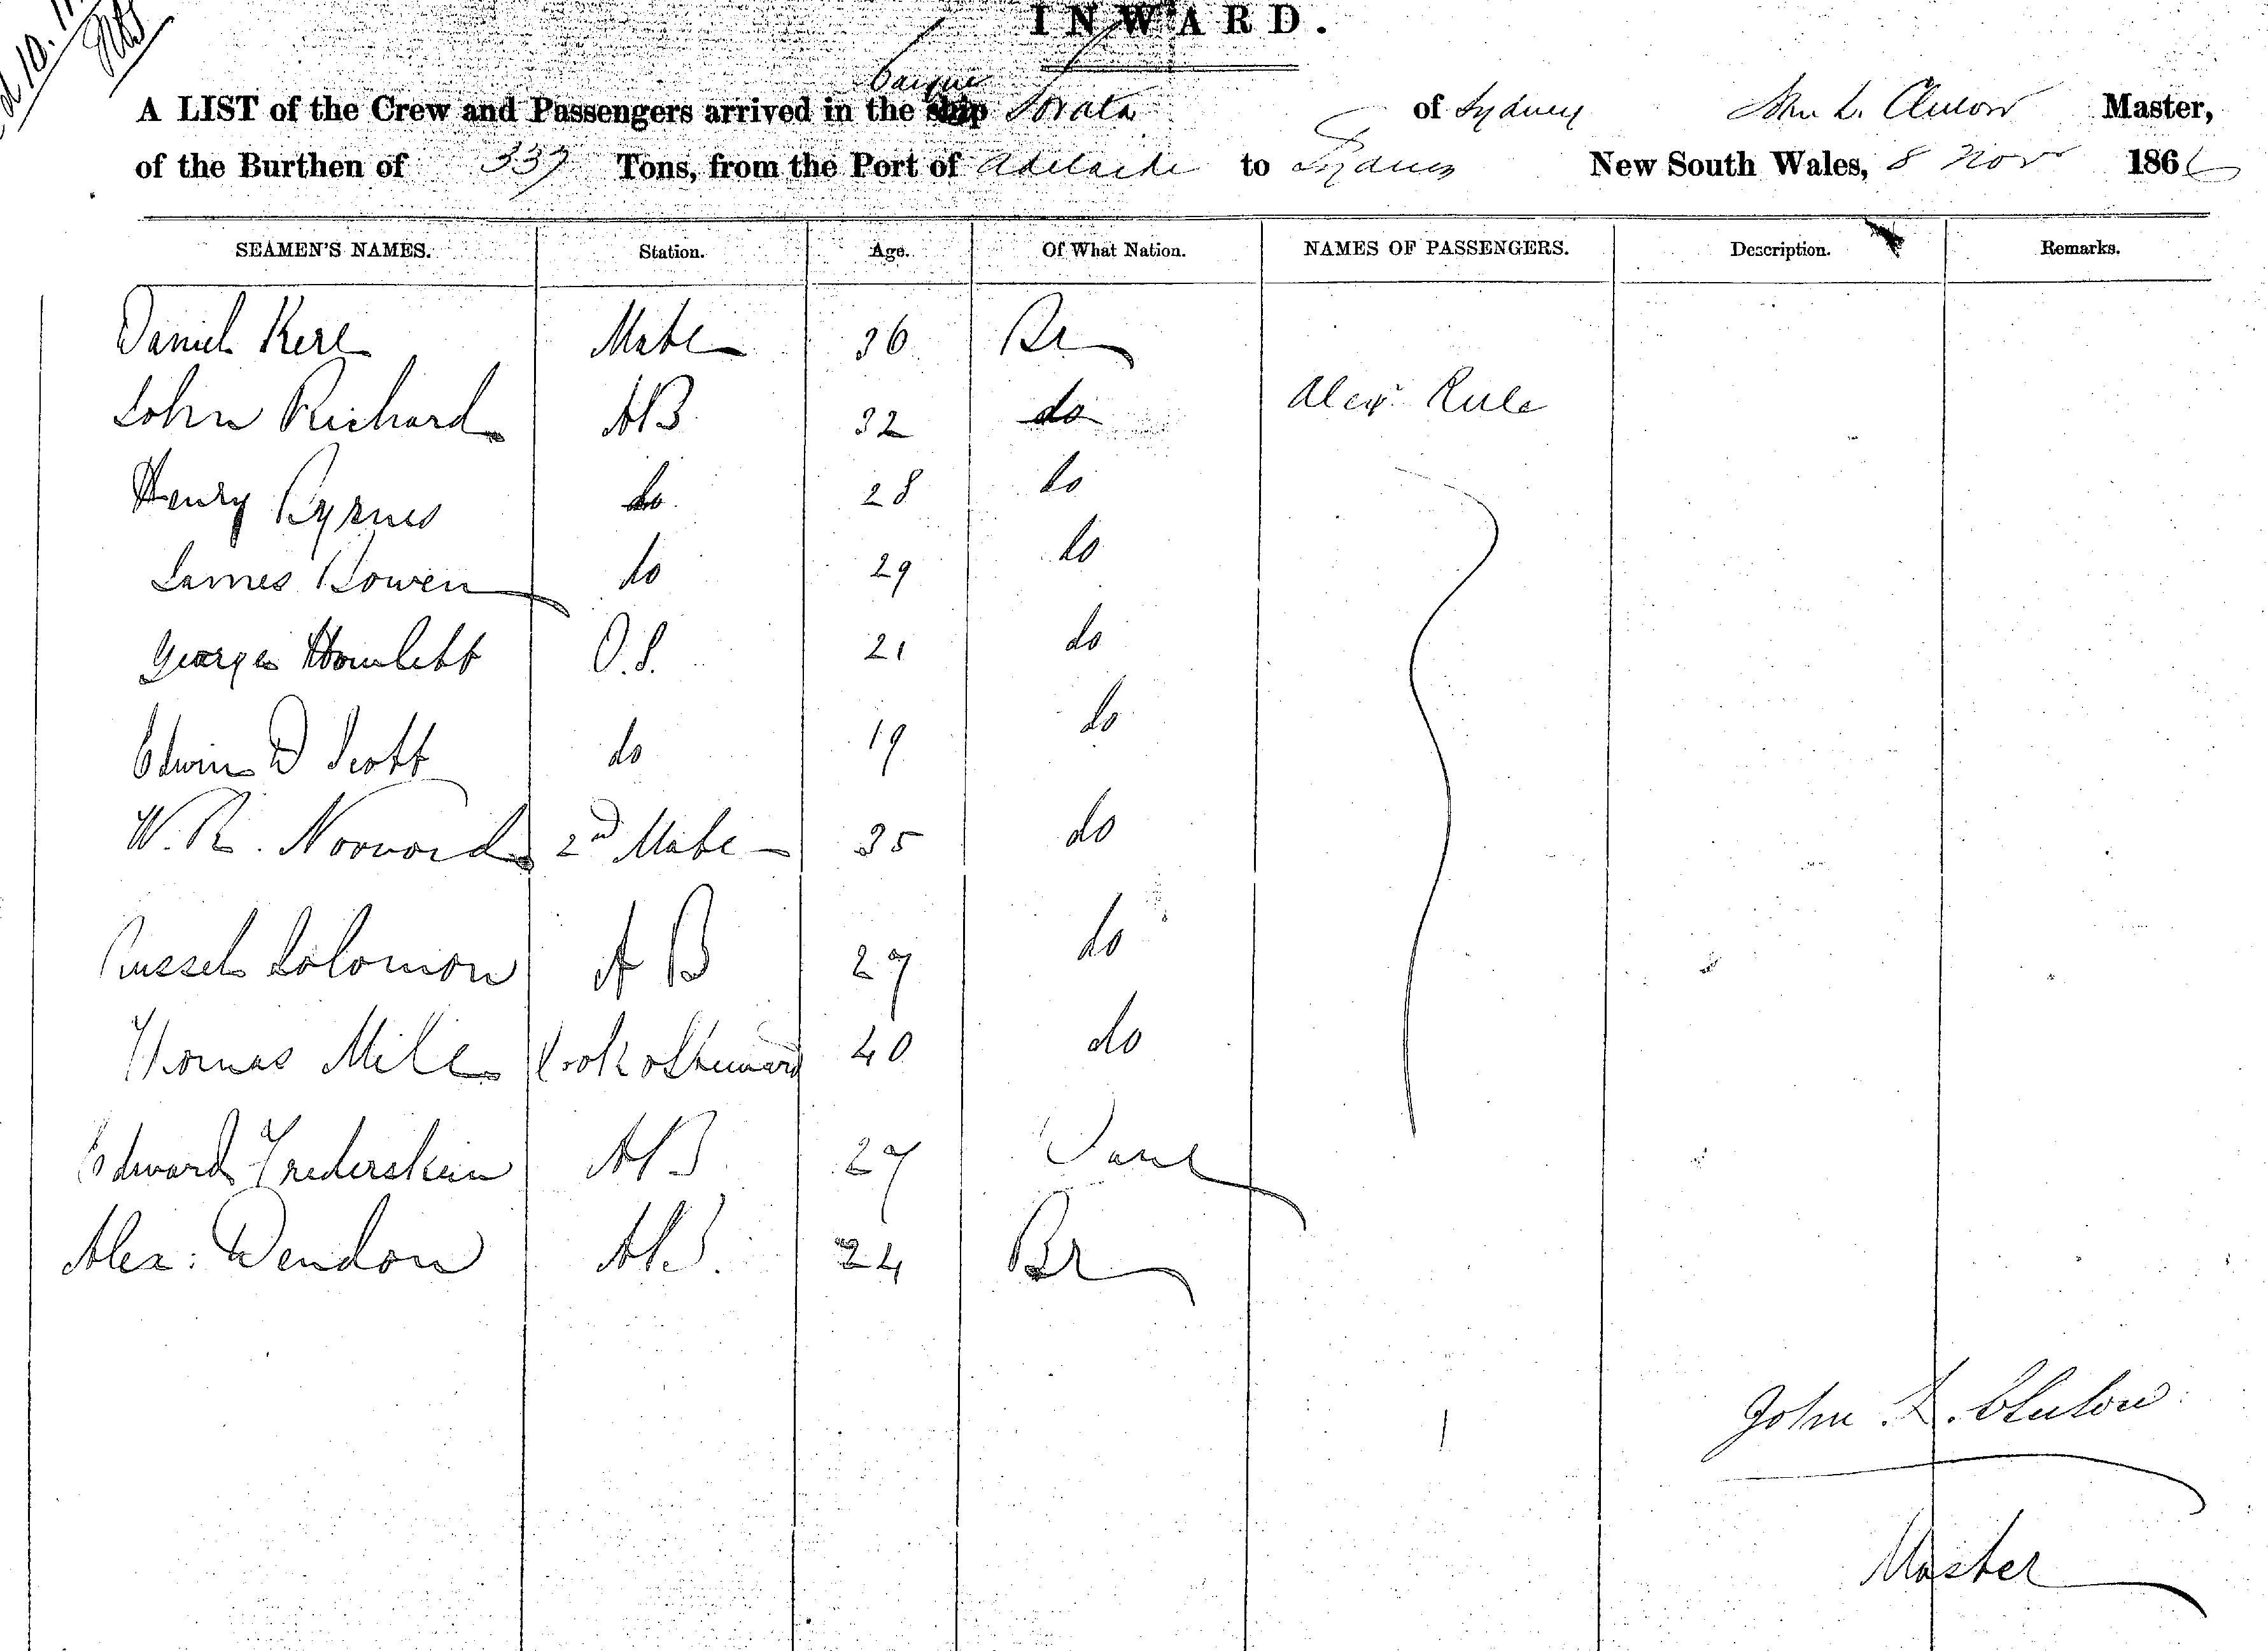 INWARD.
barque
A LIST of the Crew and Passengers arrived in the ship Sorata of Sydney John L. Clulow Master,
of the Burthen of 337 Tons, from the Port of Adelaide to Sydney New South Wales, 8 Novr 1866
SEAMEN'S NAMES. Station. Age. Of What Nation. NAMES OF PASSENGERS. Description. Remarks.
Daniel Kerr Mate 36 Br
John Richard AB 32 do Alexr Rule
Henry Byrnes do 28 do
James Bowen do 29 do
George Howlett O.S. 21 do
Edwin D Scott do 19 do
W. R. Norword 2nd Mate 35 do
Russel Solomon A B 27 do
Thomas Mill Cook & Steward 40 do
Edward AB 27 Dane
Alex: Dendon AB. 24 Br
1
John L. Clulow
Master